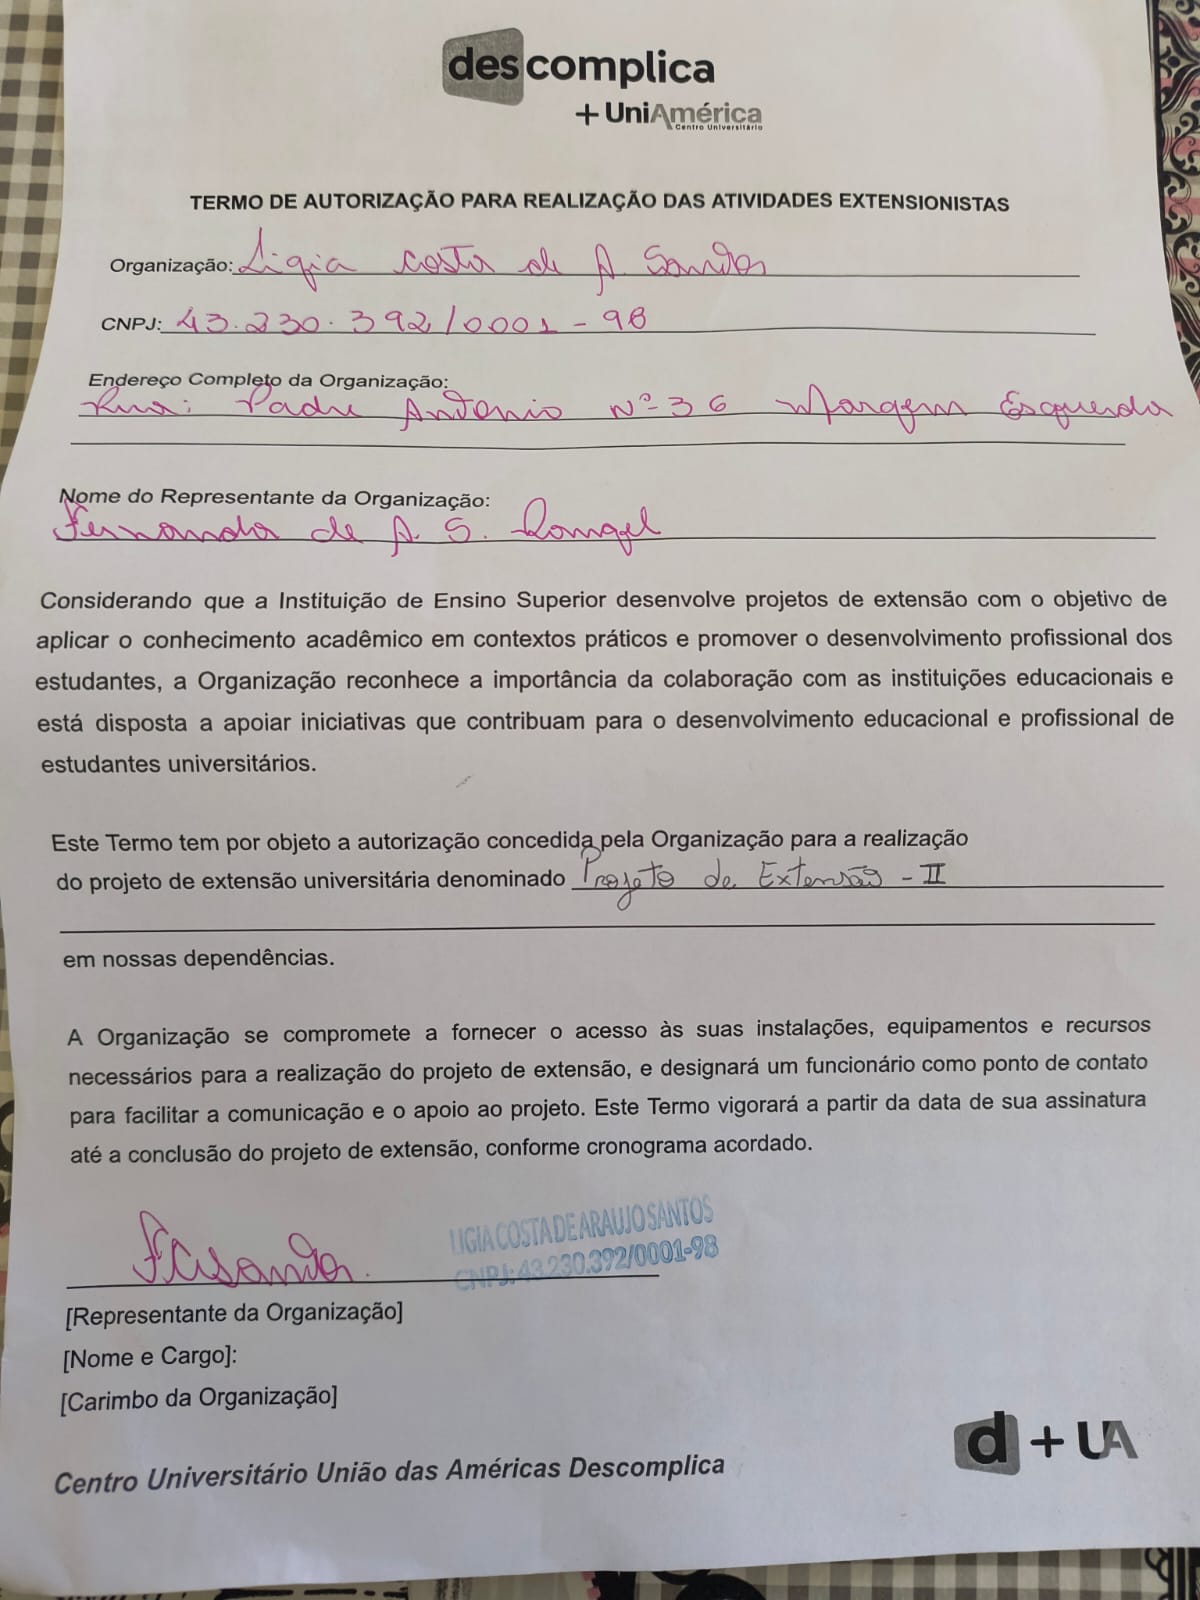 descomplica
+ UniAmérica
Centro Universitário
TERMO DE AUTORIZAÇÃO PARA REALIZAÇÃO DAS ATIVIDADES EXTENSIONISTAS
Organização: Ligia costa de A. Santos
CNPJ: 43.230.392/0001-98
Endereço Completo da Organização:
Rua: Padre Antonio Nº 36 Margem Esquerda
Nome do Representante da Organização:
Fernanda de A. S. Rangel
Considerando que a Instituição de Ensino Superior desenvolve projetos de extensão com o objetivo de
aplicar o conhecimento acadêmico em contextos práticos e promover o desenvolvimento profissional dos
estudantes, a Organização reconhece a importância da colaboração com as instituições educacionais e
está disposta a apoiar iniciativas que contribuam para o desenvolvimento educacional e profissional de
estudantes universitários.
Este Termo tem por objeto a autorização concedida pela Organização para a realização
do projeto de extensão universitária denominado Projeto de Extensão - II
em nossas dependências.
A Organização se compromete a fornecer o acesso às suas instalações, equipamentos e recursos
necessários para a realização do projeto de extensão, e designará um funcionário como ponto de contato
para facilitar a comunicação e o apoio ao projeto. Este Termo vigorará a partir da data de sua assinatura
até a conclusão do projeto de extensão, conforme cronograma acordado.
LIGIA COSTA DE ARAUJO SANTOS
CNPJ: 43.230.392/0001-98
[Representante da Organização]
[Nome e Cargo]:
[Carimbo da Organização]
d + UA
Centro Universitário União das Américas Descomplica